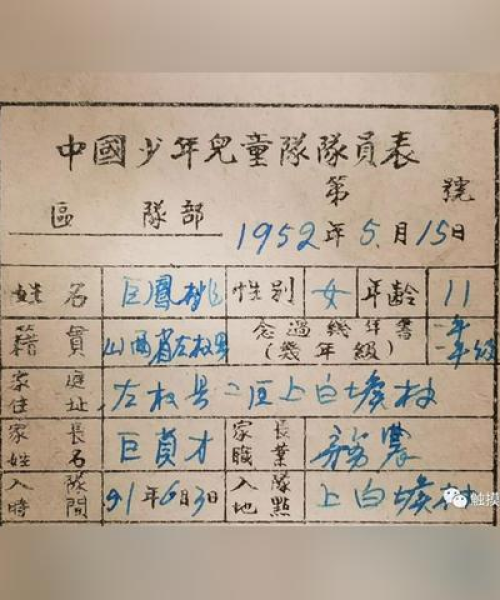 中國少年兒童隊隊員表
第 號
區 隊部
1952年5月15日
姓名 巨鳳桃 性別 女 年齡 11
籍貫 山西省左权县 念過幾年書(幾年級) 一年 一年级
家庭住址 左权县二区上白堠村
家長姓名 巨貢才 家長職業 務農
入隊時間 51年6月3日 入隊地點 上白堠村
触摸